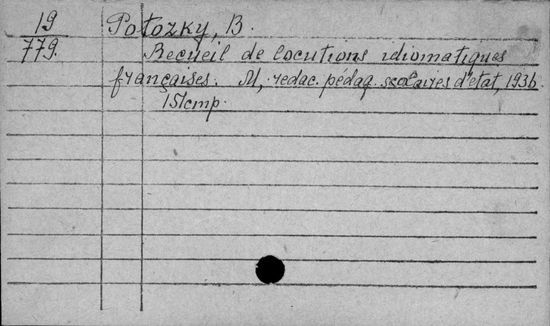 19
779.
Potozky, B.
Recueil de locutions idiomatiques
françaises. M, redac. pédag. scolaires d'etat, 1936.
151cmp.